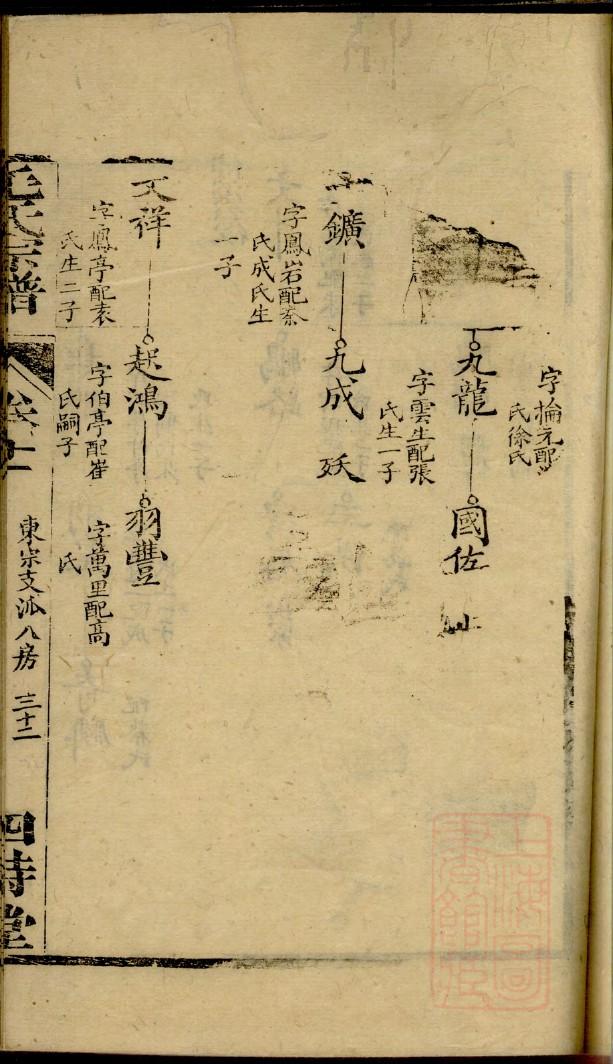 字掄元配
氏徐氏
九龍
字雲生配張
氏生一子
國佐
鑛
字鳳岩配秦
氏成氏生
一子
九成
殀
文祥
字鳳亭配袁
氏生二子
起鴻
字伯亭配崔
氏嗣子
羽豐
字萬里配高
氏
氏宗譜
卷十
東宗支派八房
三十二
四時堂